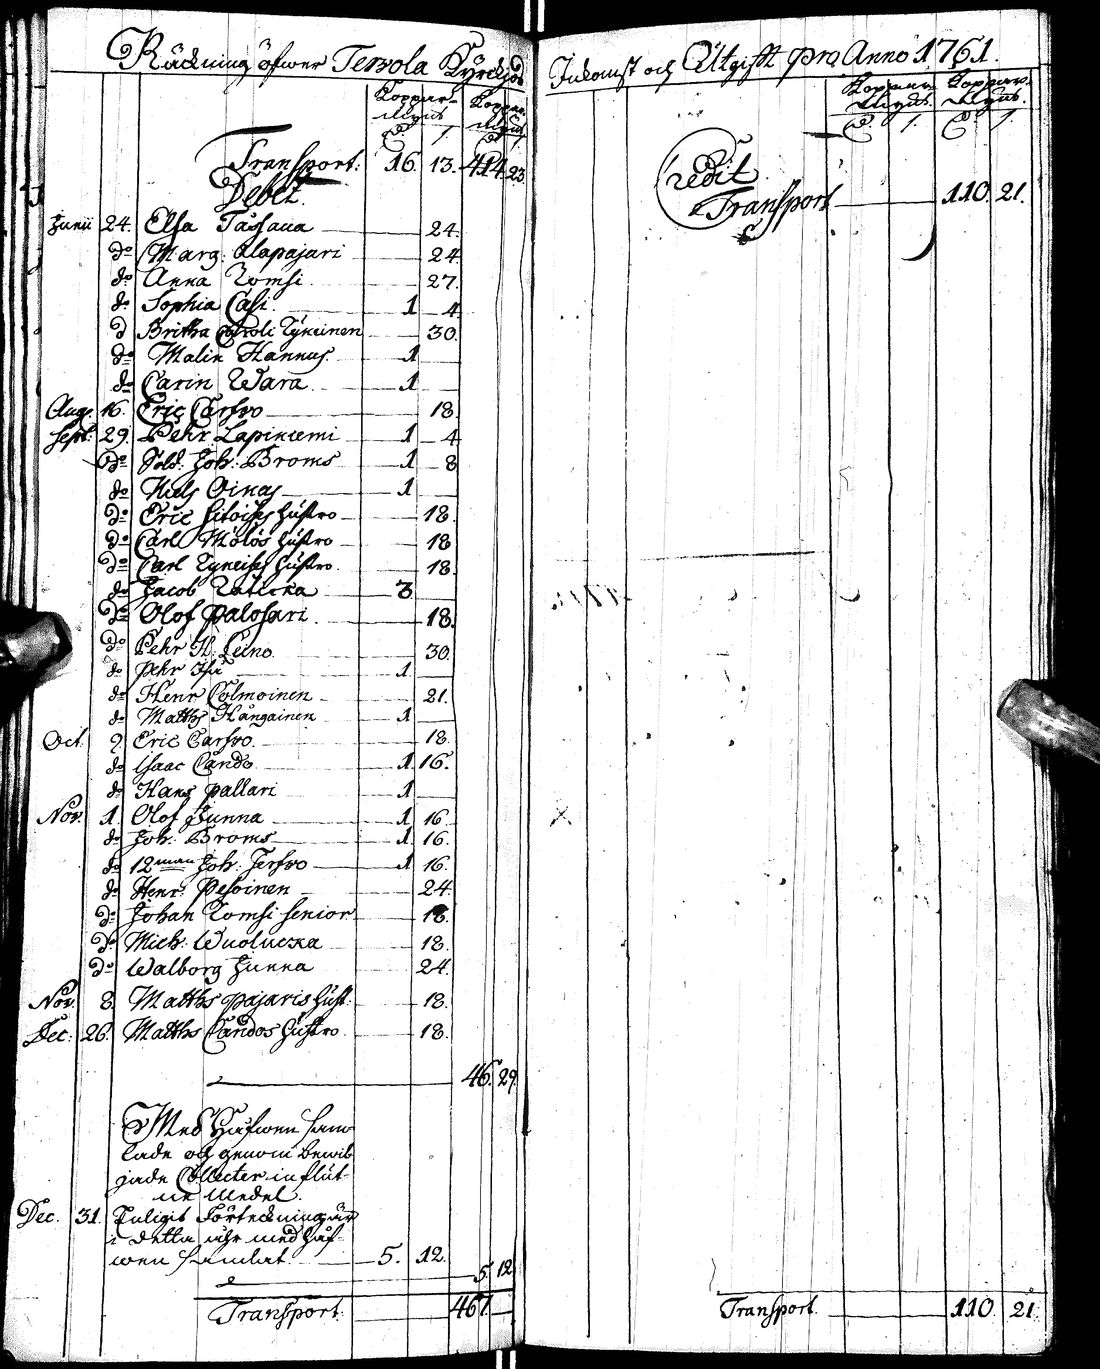 Räckning öfwer Terwola Kyrckjos
Koppar- Koppar-
Mynt Mynt.
Transport: 16. 13. 414. 23.
Debet.
Junii 24. Elsa Tassawa 24.
do Marg. Alapajari 24
do Anna Tomsi 27.
do Sophia Casi. 1 4
d Britha Caroli Tykeinen 30.
do Malin Hannus. 1
do Carin Wara. 1
Aug. 16. Eric Carsvo 18.
Sept. 29. Pehr Lapiniemi 1 4
do Sold. Joh: Broms 1 8
do Niels Oinas 1
do Eric hustro 18.
do Carl Mölös hustro 18
do Carl hustro 18.
do Jacob 3
do Olof Palosari. 18.
do Pehr H: Leino 30.
do Pehr 1
do Henr Colmoinen 21.
do Matths Hangainen 1
Oct. 9. Eric Carsvo. 18.
do Isaac Cando 1. 16.
do Hans Pallari 1
Nov. 1. Olof Junna 1 16
do Joh: Broms 1 16.
do 12man Joh: Jersvo 1 16
do Henr: Pesoinen 24.
do Johan Tomsi senior 18.
do Mich: Wuolucka 18.
do Walborg Junna 24.
Nov. 8 Matths Pajaris hust. 18.
Dec: 26. Matths Candos hustro 18.
46. 29.
Med Håfwen sam-
lade och genom bewil-
jade Collecter influt-
ne Medel.
Dec. 31. Enligit Förteckning är
i detta åhr med håf-
wen samlat. 5. 12.
5. 12
Transport. 467.
Inkomst och Utgift Pro Anno 1761.
Koppar- Koppar-
Mynt. Mynt.
Credit
Transport 110. 21.
Transport. 110. 21.